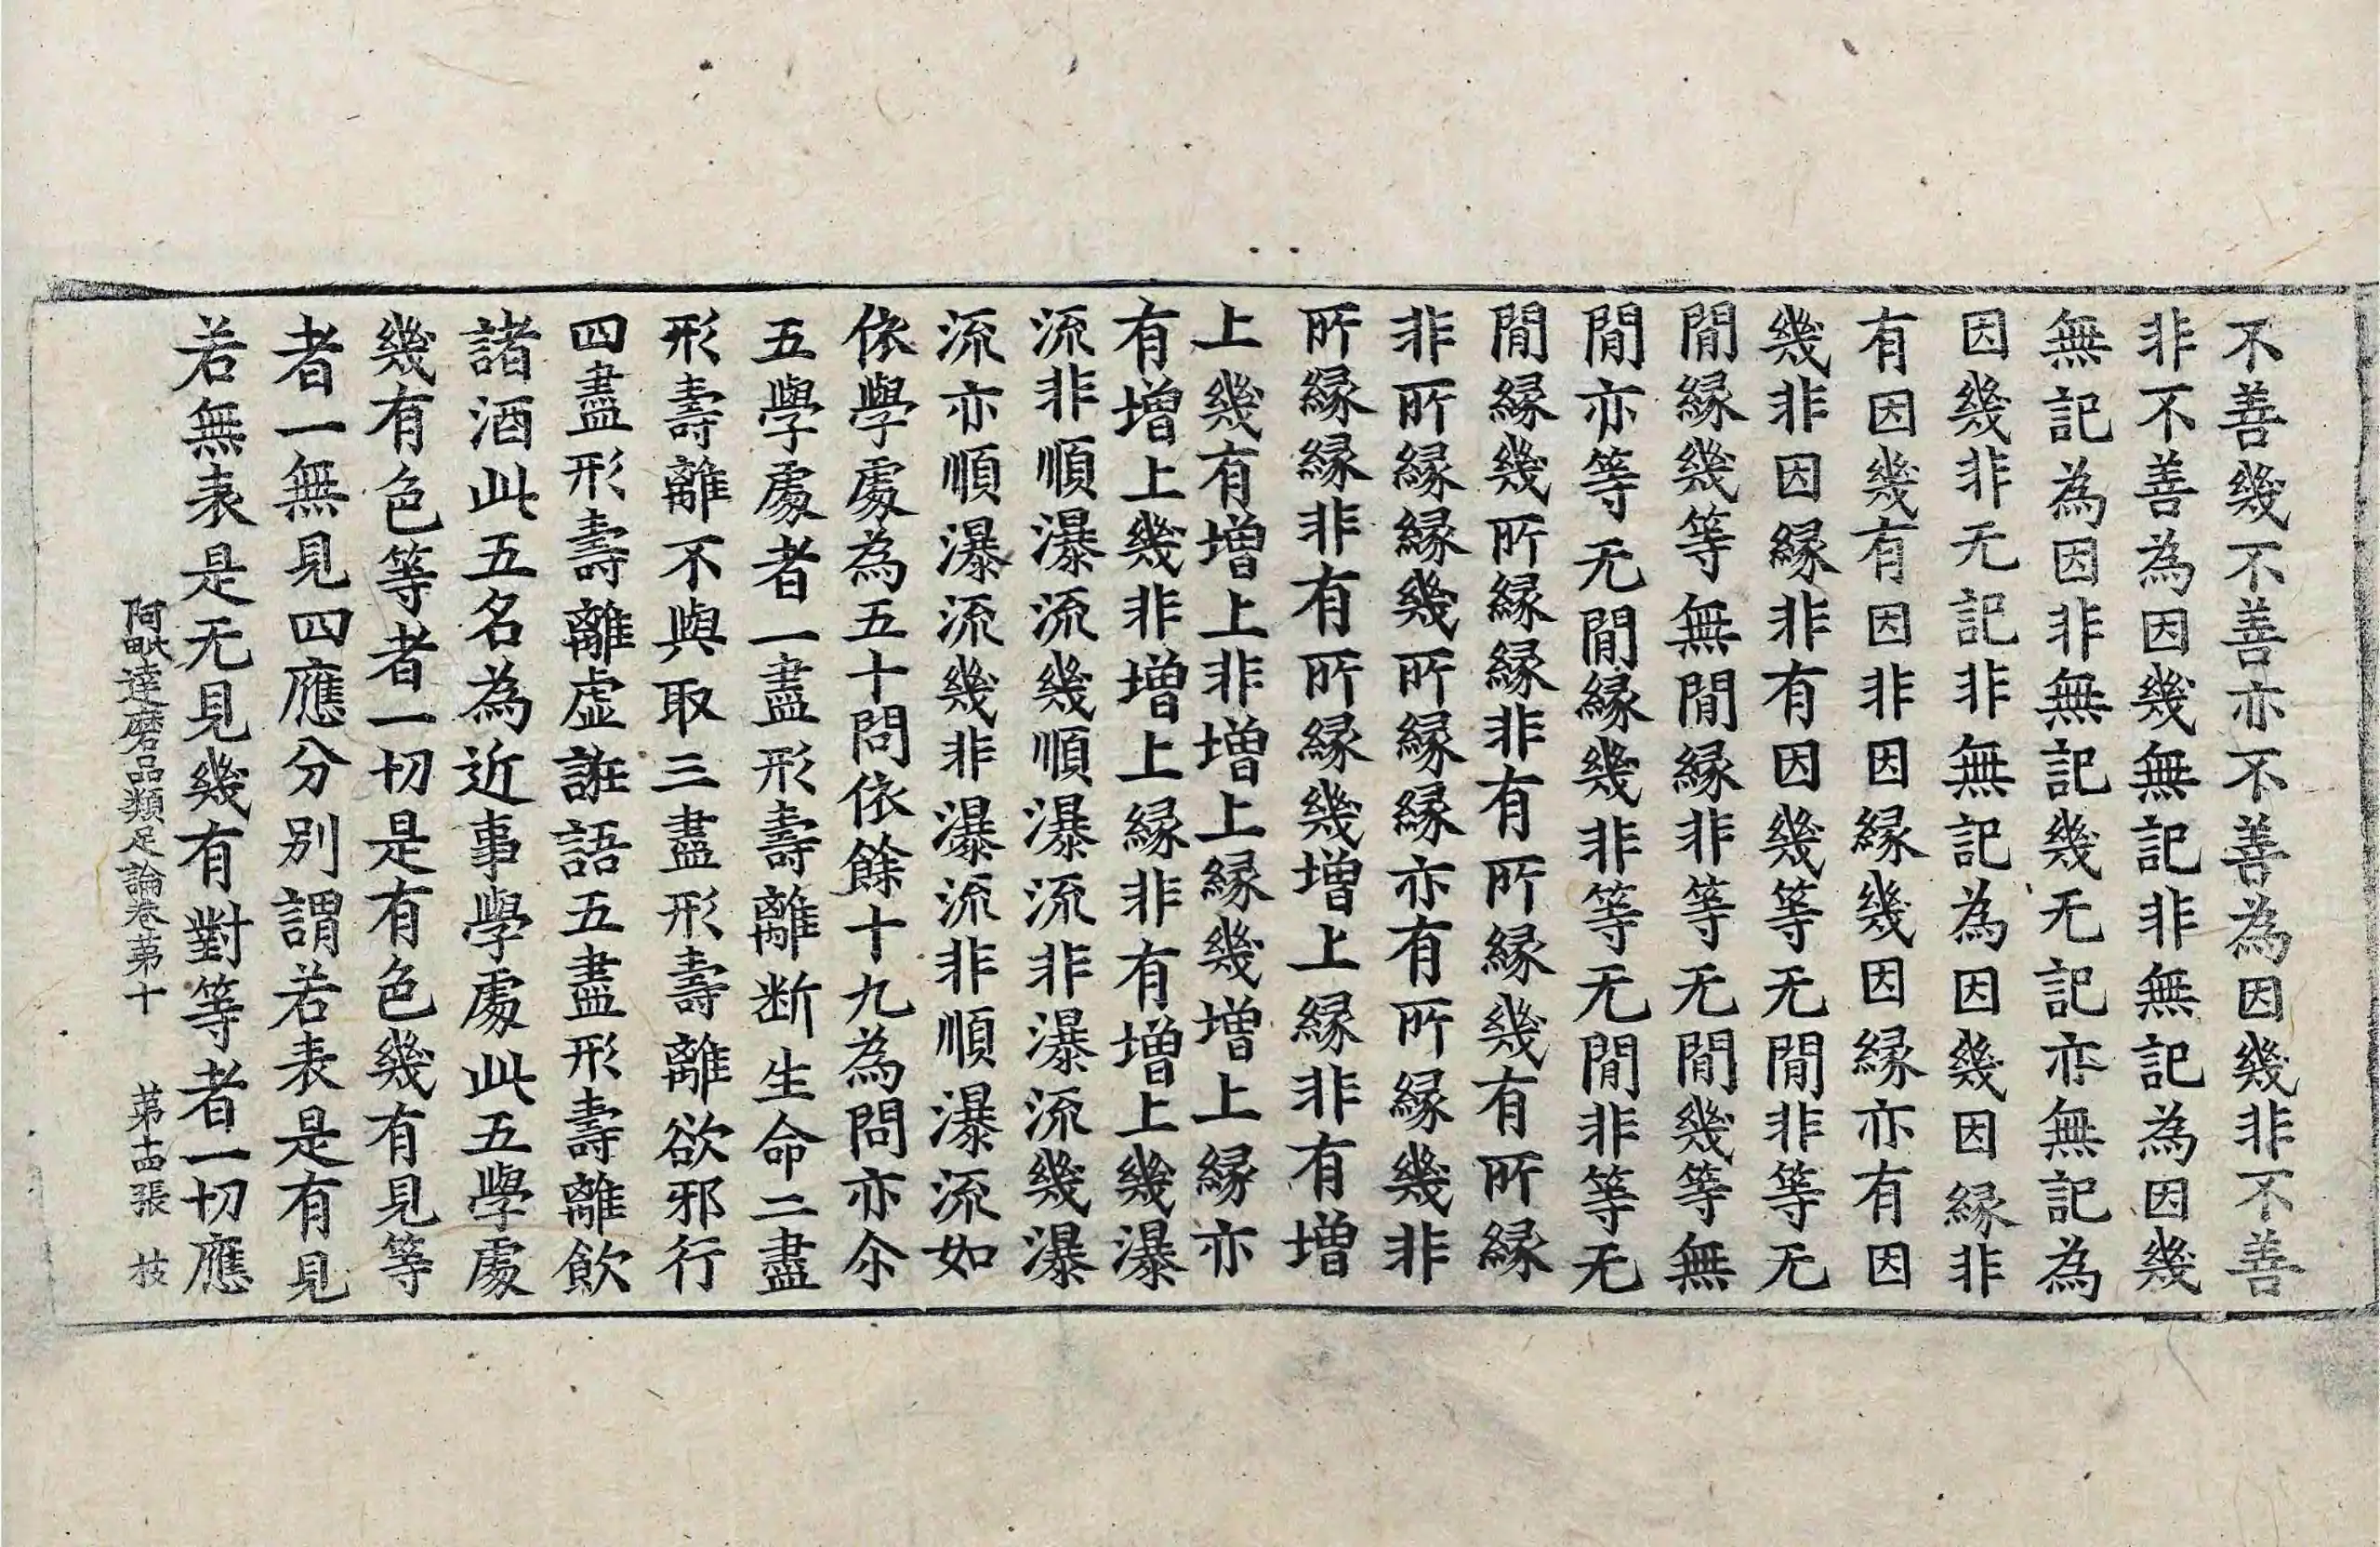 不善幾不善亦不善為因幾非不善
非不善為因幾無記非無記為因幾
無記為因非無記幾无記亦無記為
因幾非无記非無記為因幾因縁非
有因幾有因非因縁幾因縁亦有因
幾非因縁非有因幾等无間非等无
間縁幾等無間縁非等无間幾等無
間亦等无間縁幾非等无間非等无
間縁幾所縁縁非有所縁幾有所縁
非所縁縁幾所縁縁亦有所縁幾非
所縁縁非有所縁幾增上縁非有增
上幾有增上非增上縁幾增上縁亦
有增上幾非增上縁非有增上幾瀑
流非順瀑流幾順瀑流非瀑流幾瀑
流亦順瀑流幾非瀑流非順瀑流如
依學處為五十問依餘十九為問亦尒
五學處者一盡形壽離断生命二盡
形壽離不與取三盡形壽離欲邪行
四盡形壽離虛誑語五盡形壽離飲
諸酒此五名為近事學處此五學處
幾有色等者一切是有色幾有見等
者一無見四應分別謂若表是有見
若無表是无見幾有對等者一切應
阿毗達磨品類足論卷苐十 苐十四張 枝